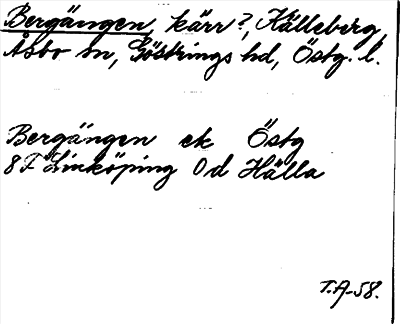 Bergängen, kärr?, Källeberg,
Åsbo sn, Göstrings hd, Östg. l.
Bergängen ek Östg
8 F Linköping 0 d Hälla
T.A-58.